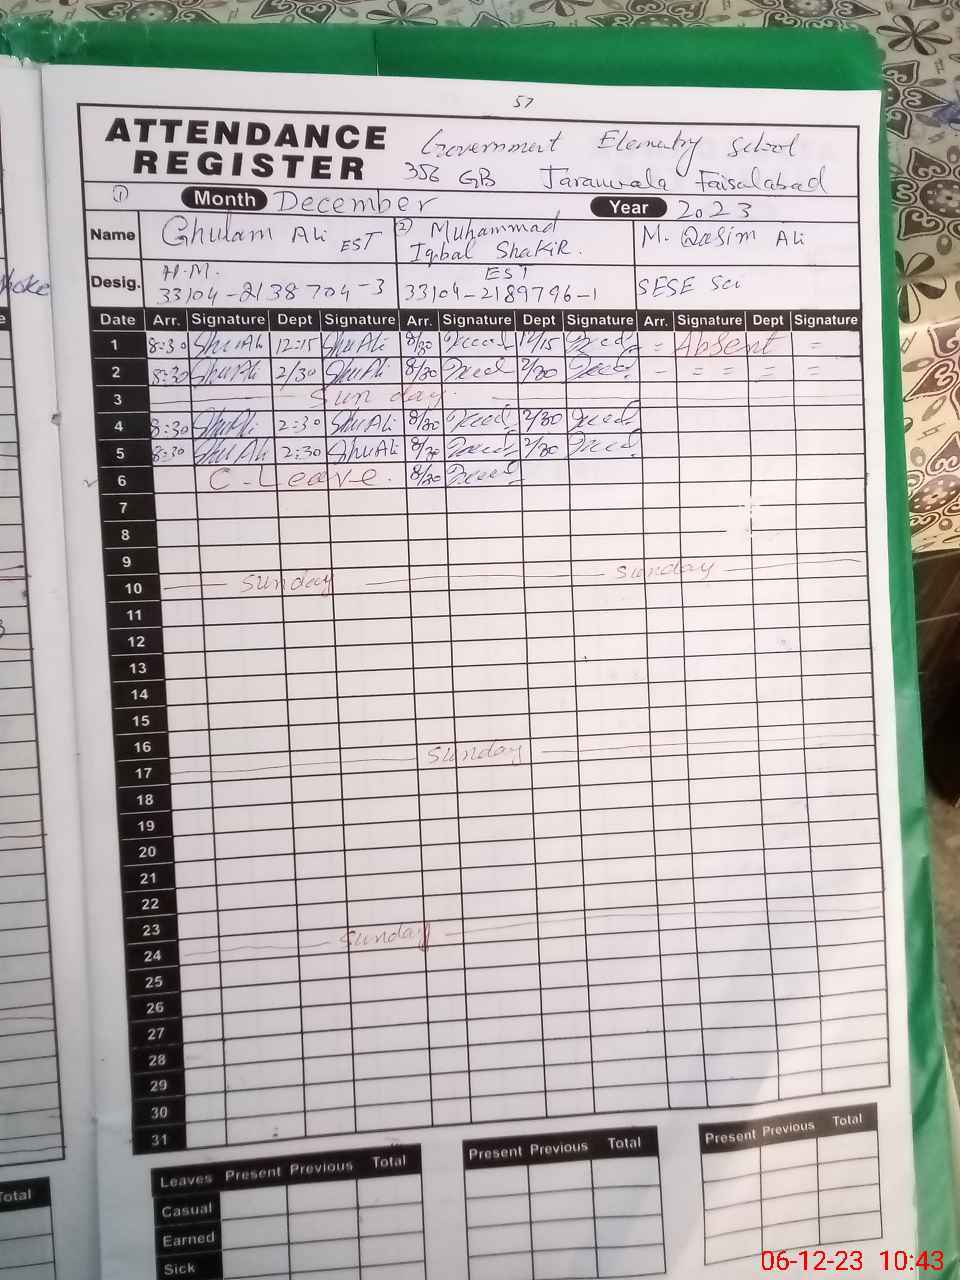 57
ATTENDANCE REGISTER
Government Elementry School
356 GB Jaranwala Faisalabad
① Month December Year 2023
Name Ghulam Ali EST ② Muhammad Iqbal Shakir. M. Qasim Ali
Desig. H.M. 33104-2138704-3 EST 33104-2189796-1 SESE Sci
Date Arr. Signature Dept Signature Arr. Signature Dept Signature Arr. Signature Dept Signature
1 8:30 12:15 8/30 12/15 = Absent =
2 8:30 2/30 8/30 2/30 - = = = =
3 Sunday
4 8:30 2:30 8/30 2/30
5 8:30 2:30 8/30 2/30
6 C-Leave. 8/30
7
8
9
10 Sunday Sunday
11
12
13
14
15
16
17 Sunday
18
19
20
21
22
23
24 Sunday
25
26
27
28
29
30
31
Leaves Present Previous Total Present Previous Total Present Previous Total
Casual
Earned
Sick
Total
06-12-23 10:43